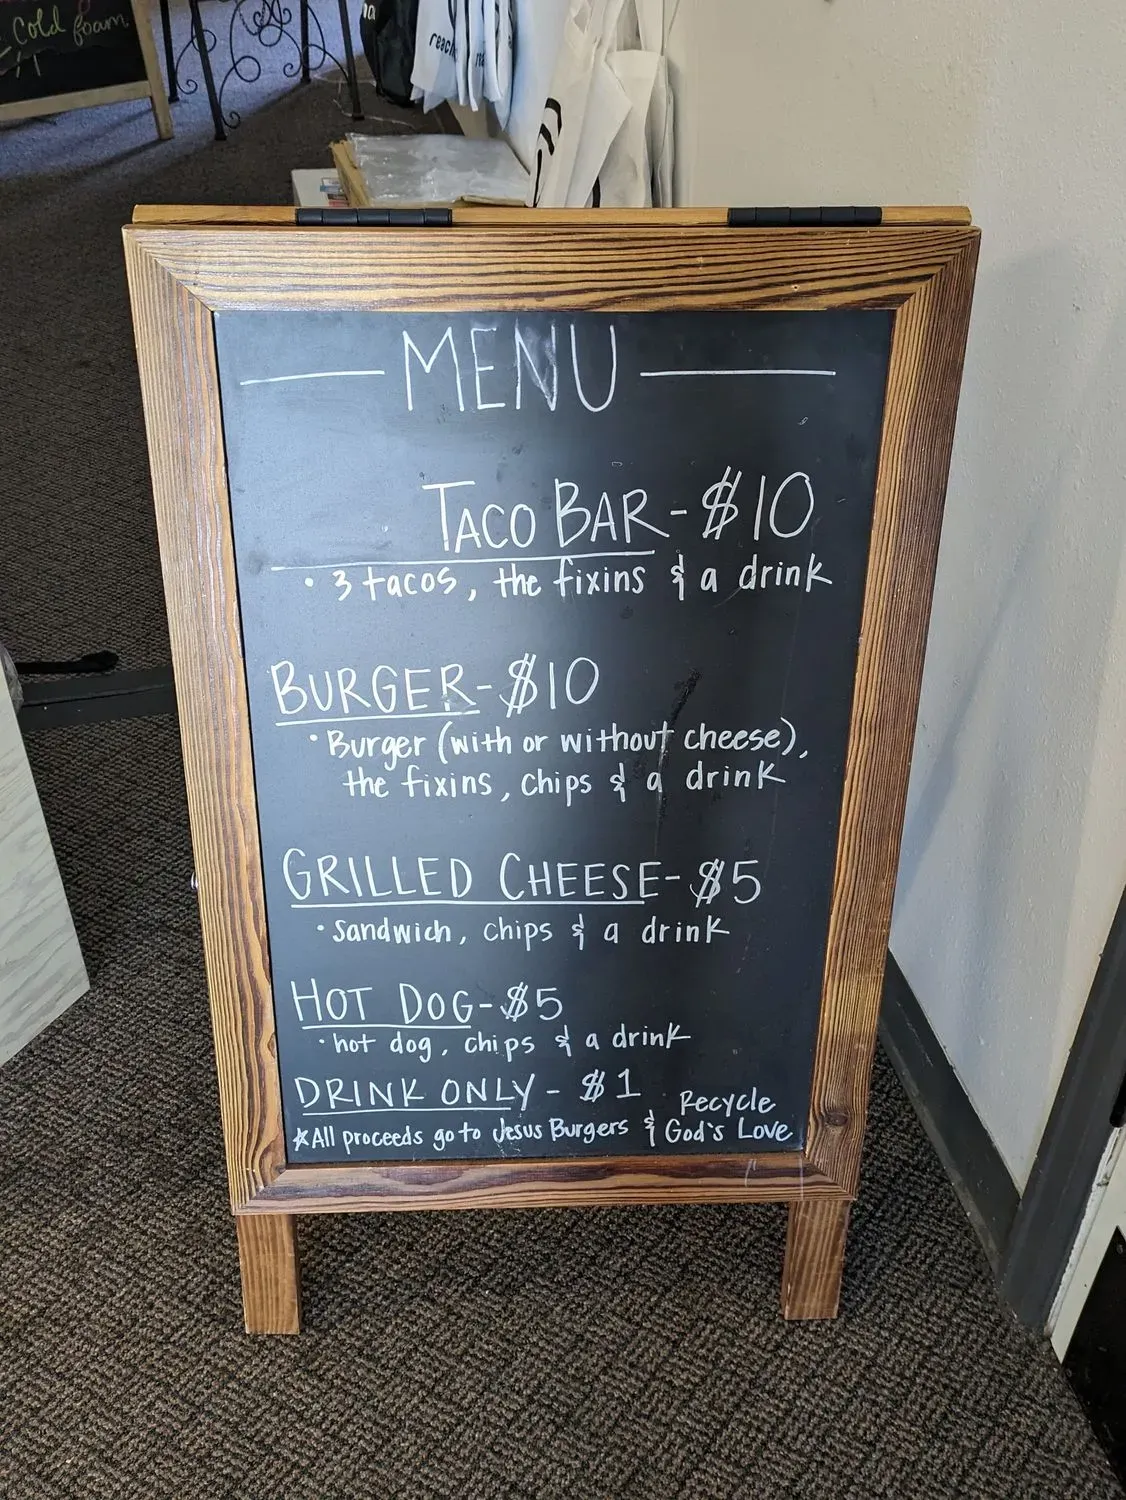 Cold foam
reach
MENU
TACO BAR - $10
• 3 tacos, the fixins & a drink
BURGER - $10
• Burger (with or without cheese),
the fixins, chips & a drink
GRILLED CHEESE - $5
• Sandwich, chips & a drink
HOT DOG - $5
• hot dog, chips & a drink
DRINK ONLY - $1
*All proceeds go to Jesus Burgers & Recycle
God's Love